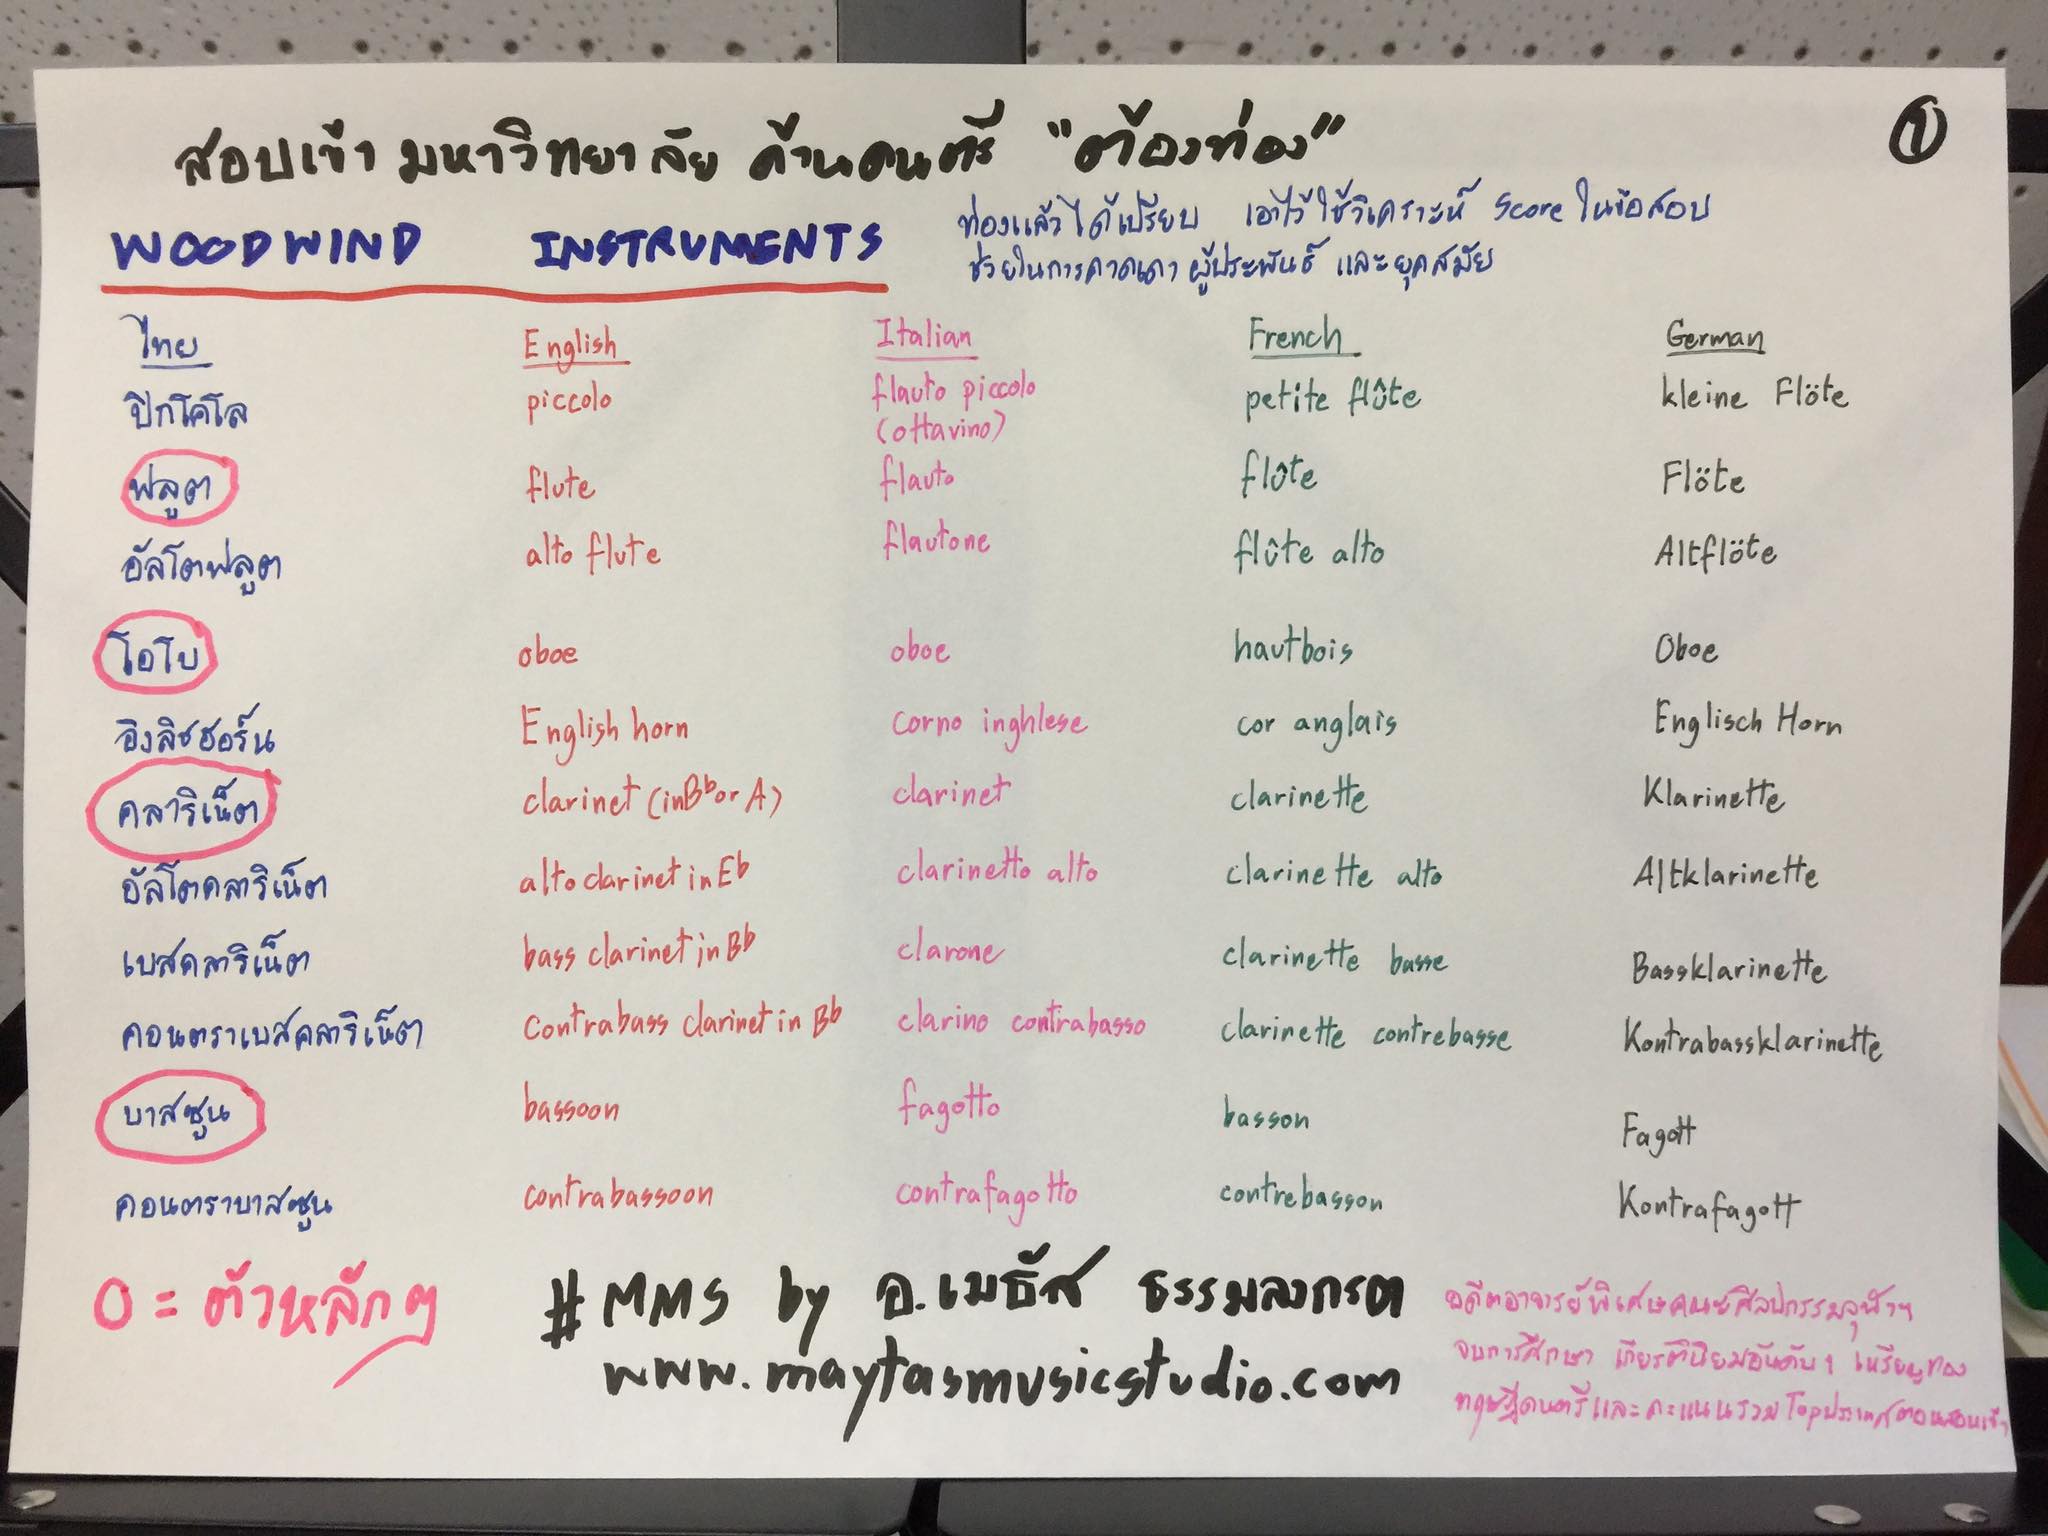 สอบเข้า มหาวิทยาลัย ด้านดนตรี "ต้องท่อง"
①
WOODWIND INSTRUMENTS
ท่องแล้วได้เปรียบ เอาไว้ใช้วิเคราะห์ Score ในข้อสอบ
ช่วยในการคาดเดา ผู้ประพันธ์ และยุคสมัย
ไทย English Italian French German
ปิกโคโล piccolo flauto piccolo petite flûte kleine Flöte
(ottavino)
ฟลูต flute flauto flûte Flöte
อัลโตฟลูต alto flute flautone flûte alto Altflöte
โอโบ oboe oboe hautbois Oboe
อิงลิชฮอร์น English horn corno inghlese cor anglais Englisch Horn
คลาริเน็ต clarinet (in Bb or A) clarinet clarinette Klarinette
อัลโตคลาริเน็ต alto clarinet in Eb clarinetto alto clarinette alto Altklarinette
เบสคลาริเน็ต bass clarinet in Bb clarone clarinette basse Bassklarinette
คอนตราเบสคลาริเน็ต contrabass clarinet in Bb clarino contrabasso clarinette contrebasse Kontrabassklarinette
บาสซูน bassoon fagotto basson Fagott
คอนตราบาสซูน contrabassoon contrafagotto contrebasson Kontrafagott
O = ตัวหลักๆ
#MMS by อ.เมธัส ธรรมลงกรต
www.maytasmusicstudio.com
อดีตอาจารย์พิเศษคณะศิลปกรรมจุฬาฯ
จบการศึกษา เกียรตินิยมอันดับ 1 เหรียญทอง
ทฤษฎีดนตรีและคะแนนรวม Topประเทศตอนสอบเข้า